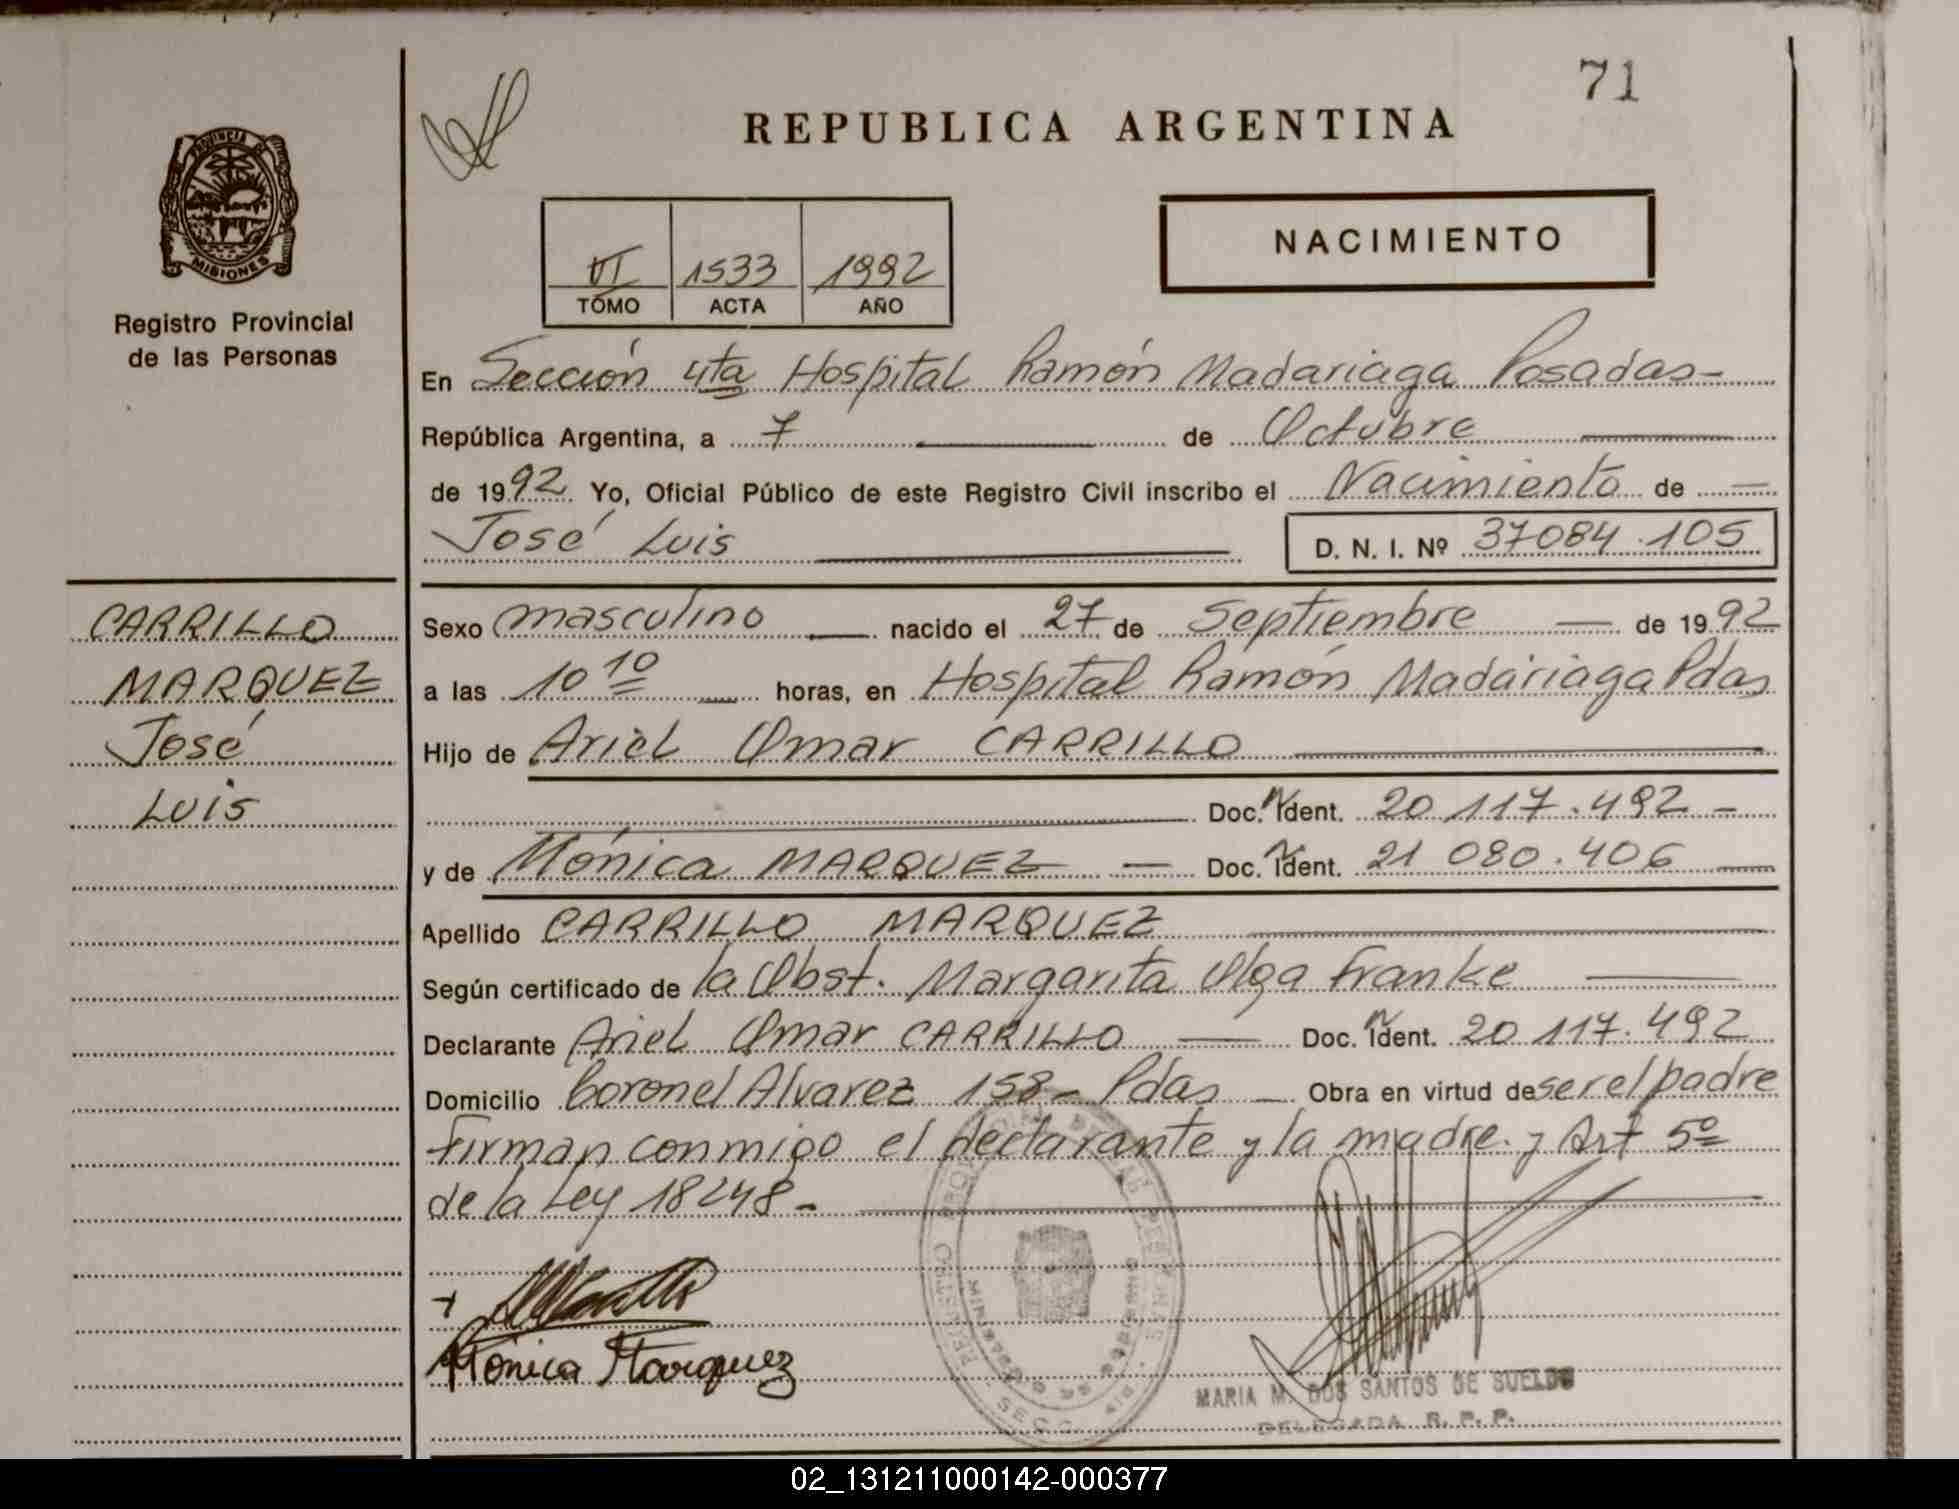 71
REPUBLICA ARGENTINA
PROVINCIA DE
MISIONES
Registro Provincial
de las Personas
NACIMIENTO
VI 1533 1992
TOMO ACTA AÑO
En Sección 4ta Hospital Ramón Madariaga Posadas-
República Argentina, a 7 de Octubre
de 1992 Yo, Oficial Público de este Registro Civil inscribo el Nacimiento de
José Luis D. N. I. Nº 37084.105
CARRILLO
MARQUEZ
José
Luis
Sexo masculino nacido el 27 de Septiembre de 1992
a las 10 10 horas, en Hospital Ramón Madariaga Pdas
Hijo de Ariel Omar CARRILLO
Doc. Ident. 20 117.492 -
y de Mónica MARQUEZ Doc. Ident. 21 080.406
Apellido CARRILLO MARQUEZ
Según certificado de la Obst. Margarita Olga Franke
Declarante Ariel Omar CARRILLO Doc. Ident. 20 117.492
Domicilio Coronel Alvarez 158 - Pdas Obra en virtud de ser el padre
Firman conmigo el declarante y la madre. y Art 5º
de la Ley 18248 -
Mónica Marquez
MARIA M. DOS SANTOS DE SUELDO
DELEGADA R. P. P.
02_131211000142-000377